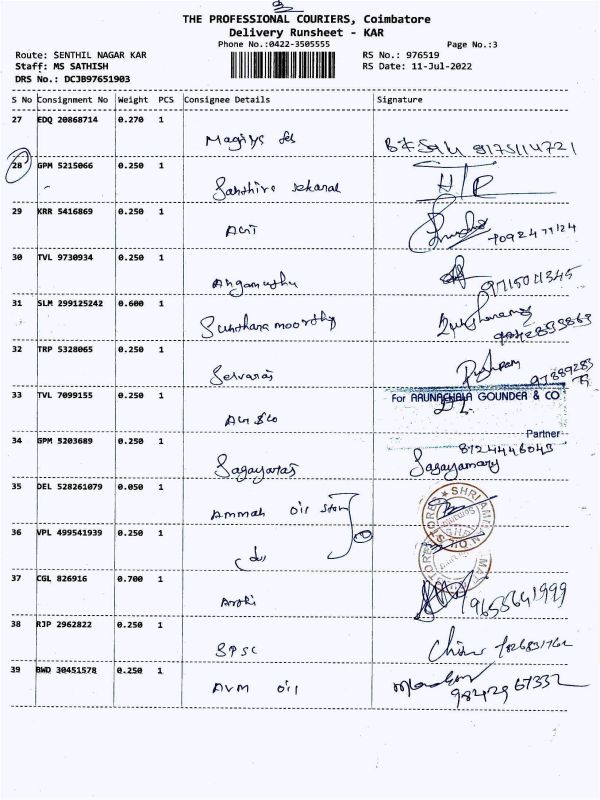 THE PROFESSIONAL COURIERS, Coimbatore
Delivery Runsheet - KAR
Phone No.:0422-3505555 Page No.:3
Route: SENTHIL NAGAR KAR RS No.: 976519
Staff: MS SATHISH RS Date: 11-Jul-2022
DRS No.: DCJB97651903
S No Consignment No Weight PCS Consignee Details Signature
27 EDQ 20868714 0.270 1
28 GPM 5215066 0.250 1
29 KRR 5416869 0.250 1
30 TVL 9730934 0.250 1
Angamuthu 9715011345
31 SLM 299125242 0.600 1
Sunthara moorthy
32 TRP 5328065 0.250 1
Selvaraj
33 TVL 7099155 0.250 1
For ARUNACHALA GOUNDER & CO
Partner
34 GPM 5203689 0.250 1
8124446043
Sagayaraj Sagayamary
35 DEL 528261079 0.050 1
Ammah oil store
SHRI AMMAN OIL STORE
36 VPL 499541939 0.250 1
do
37 CGL 826916 0.700 1
Arthi
38 RJP 2962822 0.250 1
SPSC
39 BWD 30451578 0.250 1
AVM oil
9842967332